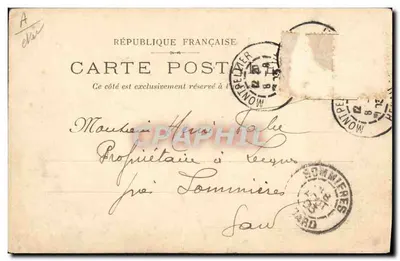 A
RÉPUBLIQUE FRANÇAISE
CARTE POST
Ce côté est exclusivement réservé à
MONTPELLIER
MONTPE
Monsieur Henri Fabre
Propriétaire à Lecques
près Sommières
Gard
SOMMIERES
GARD